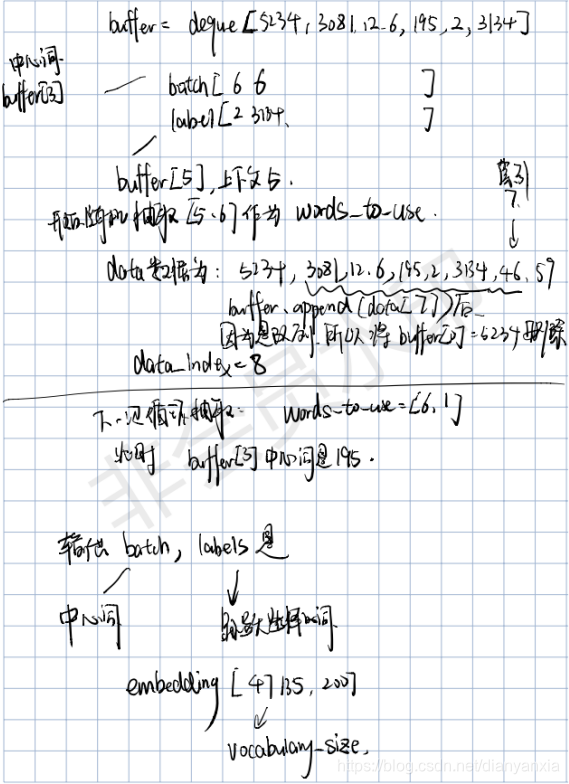 buffer = deque [5234, 3081, 12, 6, 195, 2, 3134]
中心词
buffer[3]
batch [ 6 6 ]
label [ 2 3134, ]
buffer[5], 上下文5.
随机抽取 [5, 6] 作为 words_to_use.
索引
7
data数据为: 5234, 3081, 12, 6, 195, 2, 3134, 46, 59
buffer.append(data[7])后
因为是队列, 所以将 buffer[0]=5234 删除
data_index=8
下一遍循环抽取: words_to_use=[6, 1]
此时 buffer[3] 中心词是195.
batch, labels 是
中心词
选择的词
embedding [47135, 200]
vocabulary_size.
非会员水印
https://blog.csdn.net/dianyanxia